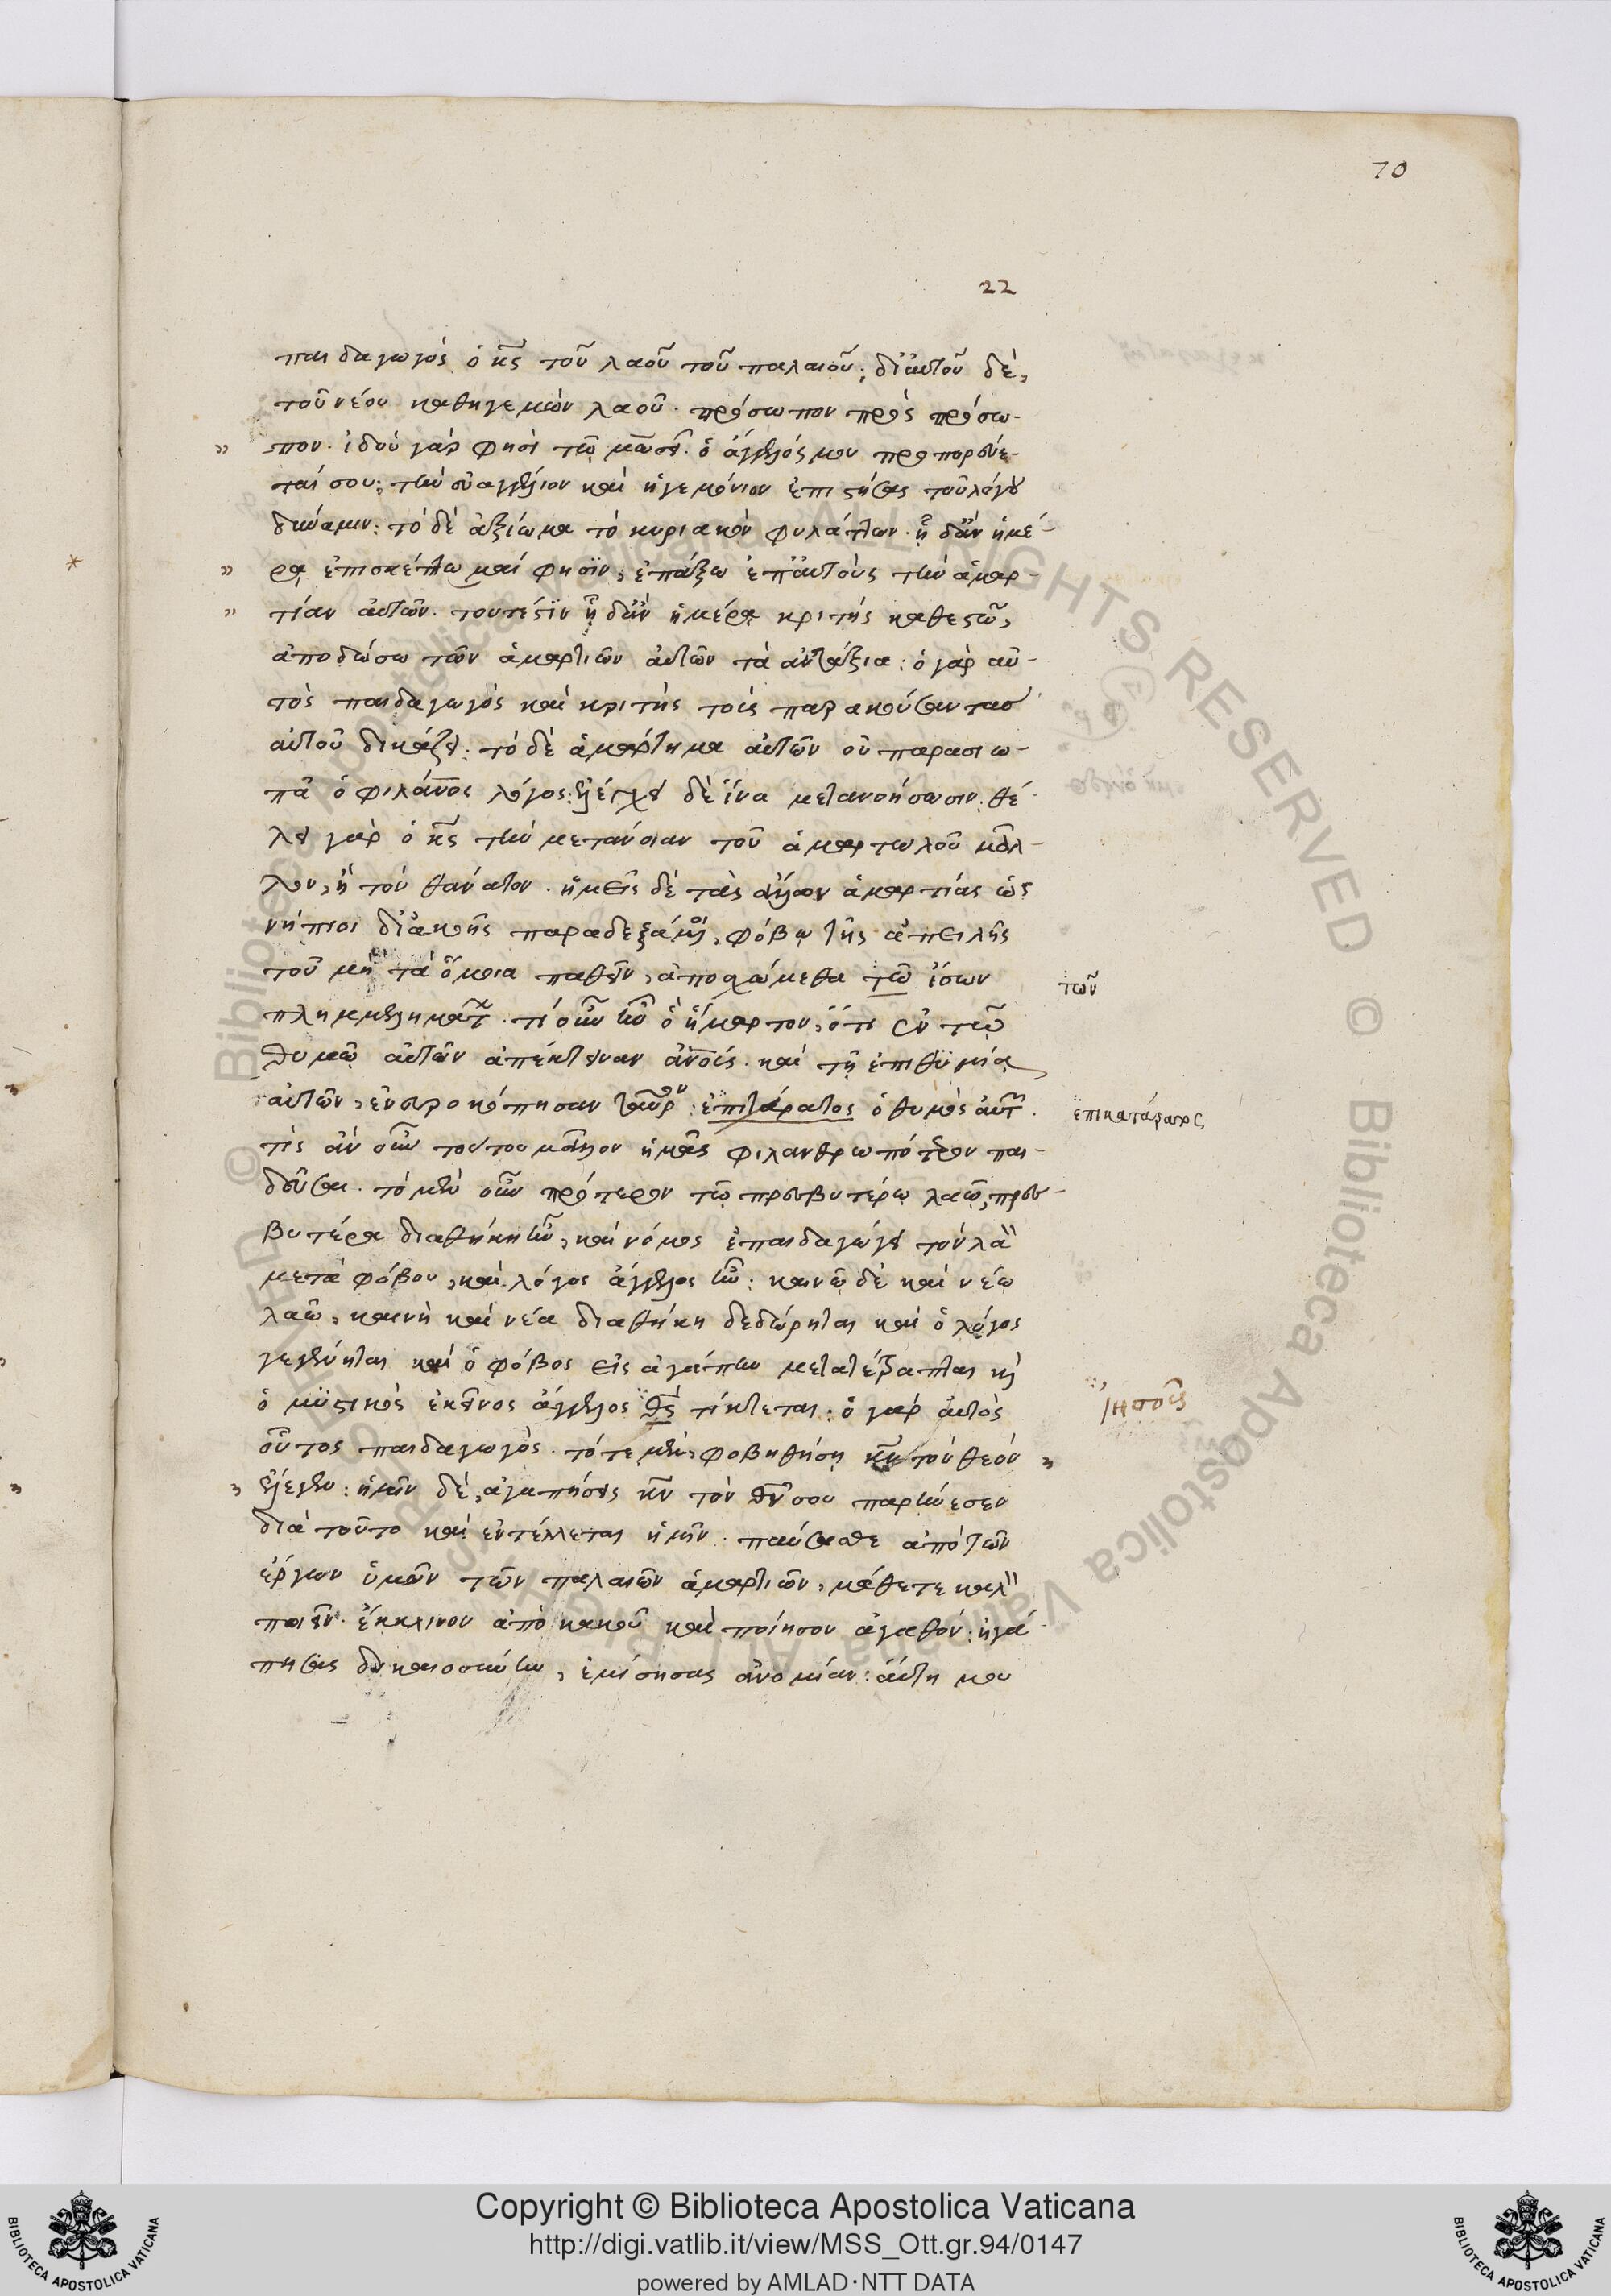 70
22
παιδαγωγὸς ὁ κ̅ς̅ τοῦ λαοῦ τοῦ παλαιοῦ; δι' αὐτοῦ δὲ,
τοῦ νέου καθηγεμὼν λαοῦ. πρόσωπον πρὸς πρόσω-
πον. ἰδοὺ γάρ φησι τῷ μωσεῖ. ὁ ἄγγελός μου προπορεύε-
ταί σου; τὴν εὐαγγέλιον καὶ ἡγεμόνιον ἐπιστήσας τοῦ λόγου
δύναμιν: τὸ δὲ ἀξίωμα τὸ κυριακὸν φυλάττων. ᾗ δ' ἂν ἡμέ-
ρᾳ ἐπισκέπτωμαί φησιν, ἐπάξω ἐπ' αὐτοὺς τὴν ἁμαρ-
τίαν αὐτῶν. τουτέστιν ᾗ δ' ἂν ἡμέρᾳ κριτὴς καθεστῶ,
ἀποδώσω τῶν ἁμαρτιῶν αὐτῶν τὰ ἀντάξια: ὁ γὰρ αὐ-
τὸς παιδαγωγὸς καὶ κριτὴς τοὺς παρακούσαντας
αὐτοῦ δικάζει: τὸ δὲ ἁμάρτημα αὐτῶν οὐ παρασιω-
πᾷ ὁ φιλάν̅ο̅ς λόγος: ἐλέγχει δὲ ἵνα μετανοήσωσιν. θέ-
λει γὰρ ὁ κ̅ς̅ τὴν μετάνοιαν τοῦ ἁμαρτωλοῦ μᾶλ-
λον, ἢ τὸν θάνατον. ἡμεῖς δὲ τὰς ἄλλων ἁμαρτίας ὡς
νήπιοι δι' ἀκοῆς παραδεξάμενοι, φόβῳ τῆς ἀπειλῆς
τοῦ μὴ τὰ ὅμοια παθεῖν, ἀποσχώμεθα τῶ ἴσων
τῶν
πλημμελημάτ. τί οὖν ἦν ὃ ἥμαρτον, ὅτι ἐν τῷ
θυμῷ αὐτῶν ἀπέκτειναν ἀν̅ο̅ύς. καὶ τῇ ἐπιθυμίᾳ
αὐτῶν, ἐνευροκόπησαν ταῦρον: ἐπιτάρατος ὁ θυμὸς αὐτ.
ἐπικατάρατος,
τίς ἂν οὖν τούτου μᾶλλον ἡμᾶς φιλανθρωπότερον παι-
δεῦσαι. τὸ μὲν οὖν πρότερον τῷ πρεσβυτέρῳ λαῷ, πρεσ-
βυτέρα διαθήκη ἦν, καὶ νόμος ἐπαιδαγώγει τὸν λα
μετὰ φόβου, καὶ λόγος ἄγγελος ἦν: καινῷ δὲ καὶ νέῳ
λαῷ, καινὴ καὶ νέα διαθήκη δεδώρηται καὶ ὁ λόγος
γεγένηται καὶ ὁ φόβος εἰς ἀγάπην μετατέτραπται κ
ὁ μυστικὸς ἐκεῖνος ἄγγελος θ̅ς̅ τίκτεται: ὁ γὰρ αὐτὸς
Ἰησοῦς
οὗτος παιδαγωγὸς. τότε μὲν, φοβηθήσῃ κ̅ν̅ τὸν θεὸν
ἔλεγεν: ἡμῖν δὲ, ἀγαπήσεις κ̅ν̅ τὸν θ̅ν̅ σου παρῄνεσεν
διὰ τοῦτο καὶ ἐντέλλεται ἡμῖν. παύσασθε ἀπὸ τῶν
ἔργων ὑμῶν τῶν παλαιῶν ἁμαρτιῶν, μάθετε καλ
ποιεῖν. ἔκκλινον ἀπὸ κακοῦ καὶ ποίησον ἀγαθόν: ἠγά-
πησας δικαιοσύνην, ἐμίσησας ἀνομίαν: αὕτη μου
Copyright © Biblioteca Apostolica Vaticana
http://digi.vatlib.it/view/MSS_Ott.gr.94/0147
powered by AMLAD·NTT DATA